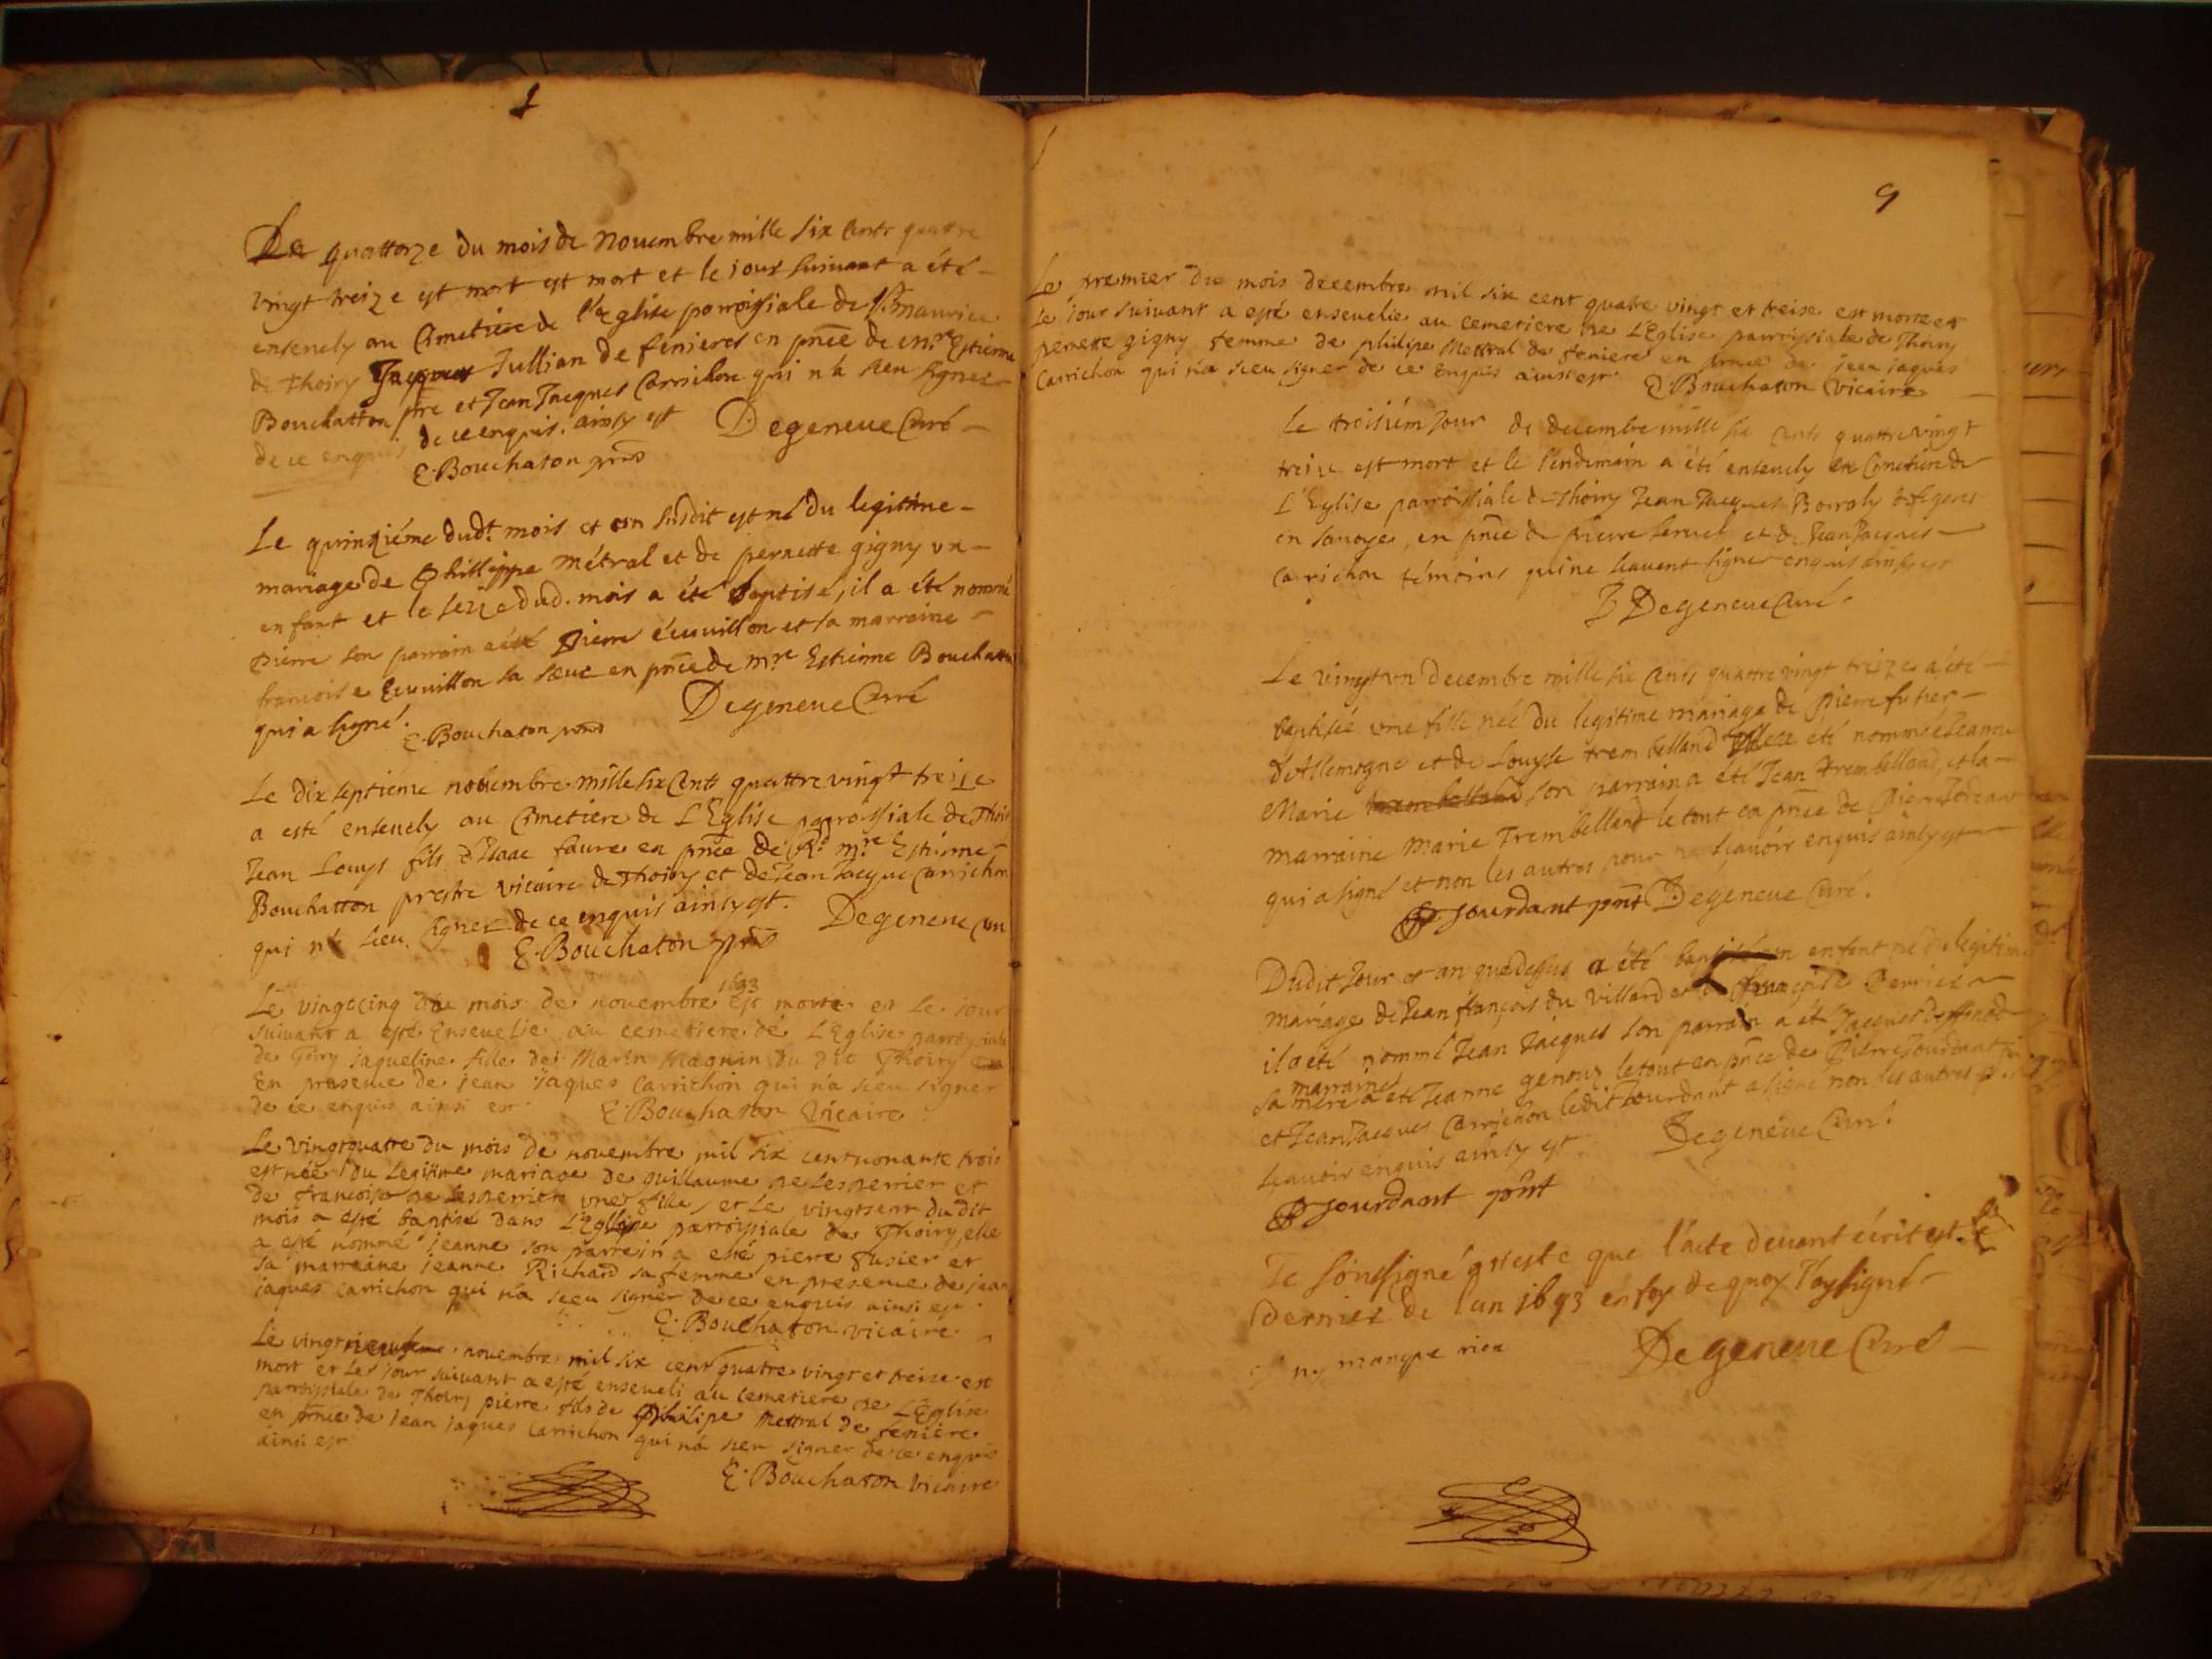 Le quattorze du mois de Nouembre mille six cents quattre
vingt treize est mort est mort et le jour suivant a été
enseuely au Cimetiere de l'Eglise parroissiale de St. Maurice
de Thoiry Jacques Jullian de fenieres en pnce de mre. Estienne
Bouchatton ptre et Jean Jacques Carrichon qui n'a sceu signer
de ce enquis de ce enquis. ainsy est Degeneue Curé
E. Bouchaton
Le quinziéme dudt. mois et an susdit est né du legitime
mariage de Phillippe Métral et de pernette gigny un
enfant et le seize dud. mois a été baptisé, il a été nommé
pierre son parrain a été Pierre écuuillon et sa marraine
francoise Ecuuillon sa sœur en pnce de mre Estienne Bouchatton
qui a signé. Degeneue Curé
E. Bouchaton
Le dix septieme nobembre mille six cents quattre vingt treize
a esté enseuely au Cimetiere de L'Eglise parrossiale de Thoiry
Jean Louys fils d'Isaac faure en pnce de Rd. mre Estienne
Bouchatton prestre vicaire de Thoiry et de Jean Jacque Carrichon
qui n'a sceu signer de ce enquis ainsy est. Degeneue Curé
E. Bouchaton
Le vingtcinq du mois de nouembre 1693 est morte et le jour
suivant a esté Enseuelie au cemetiere de L'Eglise parroissiale
de Toiry jaqueline fille de Marin Magnin du dit Thoiry
En presence de jean jaques Carrichon qui n'a sceu signer
de ce enquis ainsi est. E. Bouchaton Vicaire
Le vingtquatre du mois de nouembre mil six cent nonante trois
est née du Legitime mariage de guillaume de Lesperrier et
de francoise de Lesperrier une fille, et Le vingtsept du dit
mois a esté baptisé dans L'Eglise parroissiale de Thoiry, elle
a esté nommé jeanne son parrein a esté pierre fusier et
sa marreine jeanne Richard sa femme en presence de jean
jaques Carrichon qui n'a sceu signer de ce enquis ainsi est.
E. Bouchaton vicaire
Le vingtneufe nouembre mil six cent quatre vingt et treise est
mort et Le jour suivant a esté enseueli au cemetiere de L'Eglise
parroissiale de Thoiry pierre fils de Philipe Mettral de feniere
en pnce de jean jaques Carrichon qui n'a sceu signer de ce enquis
ainsi est
E. Bouchaton Vicaire
9
Le premier du mois decembre mil six cent quatre vingt et treise est morte et
le jour suivant a esté enseuelie au cemetiere de L'Eglise parroissiale de Thoiry
perrette gigny femme de philipe Mettral de feniere en pnce de jean jaques
Carrichon qui n'a sceu signer de ce enquis ainsi est. E Bouchaton Vicaire
Le troisiém jour de decembre mille six cents quattre vingt
treize est mort et le lendemain a été enseuely au Cimetiere de
L'Eglise parroissiale de Thoiry Jean Jacques
en Sauoye, en pnce de pierre et de Jean Jacques
Carichon témoins qui ne scauent signer enquis ainsy est
Degeneue Curé
Le vingt un decembre mille six cents quattre vingt treize a été
baptisée une fille née du legitime mariage de Pierre futier
d'Allemogne et de Louyse trembelland elle a été nommée Jeanne
Marie trembelland son parrain a été Jean trembelland, et la
marraine Marie Trembelland le tout en pnce de Pierre Jordant
qui a signé et non les autres pour ne scavoir enquis ainsy est
P Jourdant pnt Degeneue Curé.
Dudit Jour et an que dessus a été baptisé un enfant né du legitime
mariage de Jean françois du Villard et de françoise Perrier
il a été nommé Jean Jacques son parrain a été Jacques
sa mere marraine a été Jeanne genoux le tout en pnce de Pierre Jourdant
et Jean Jacques Carrichon ledit Jourdant a signé non les autres
scavoir enquis ainsy est. Degeneue Curé.
P Jourdant pnt
Je soussigné atteste que l'acte deuant écrit est le
dernier de l'an 1693 en foy de quoy J'ay signé
n'y manque rien Degeneue Curé